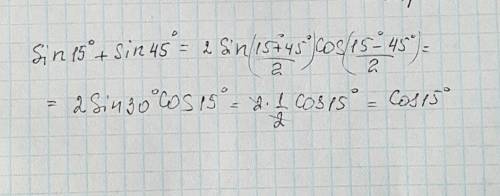 Sin15° + Sin45° = 2 Sin(15°+45°/2)Cos(15°-45°/2) =
= 2Sin30°Cos15° = 2·1/2 Cos15° = Cos15°